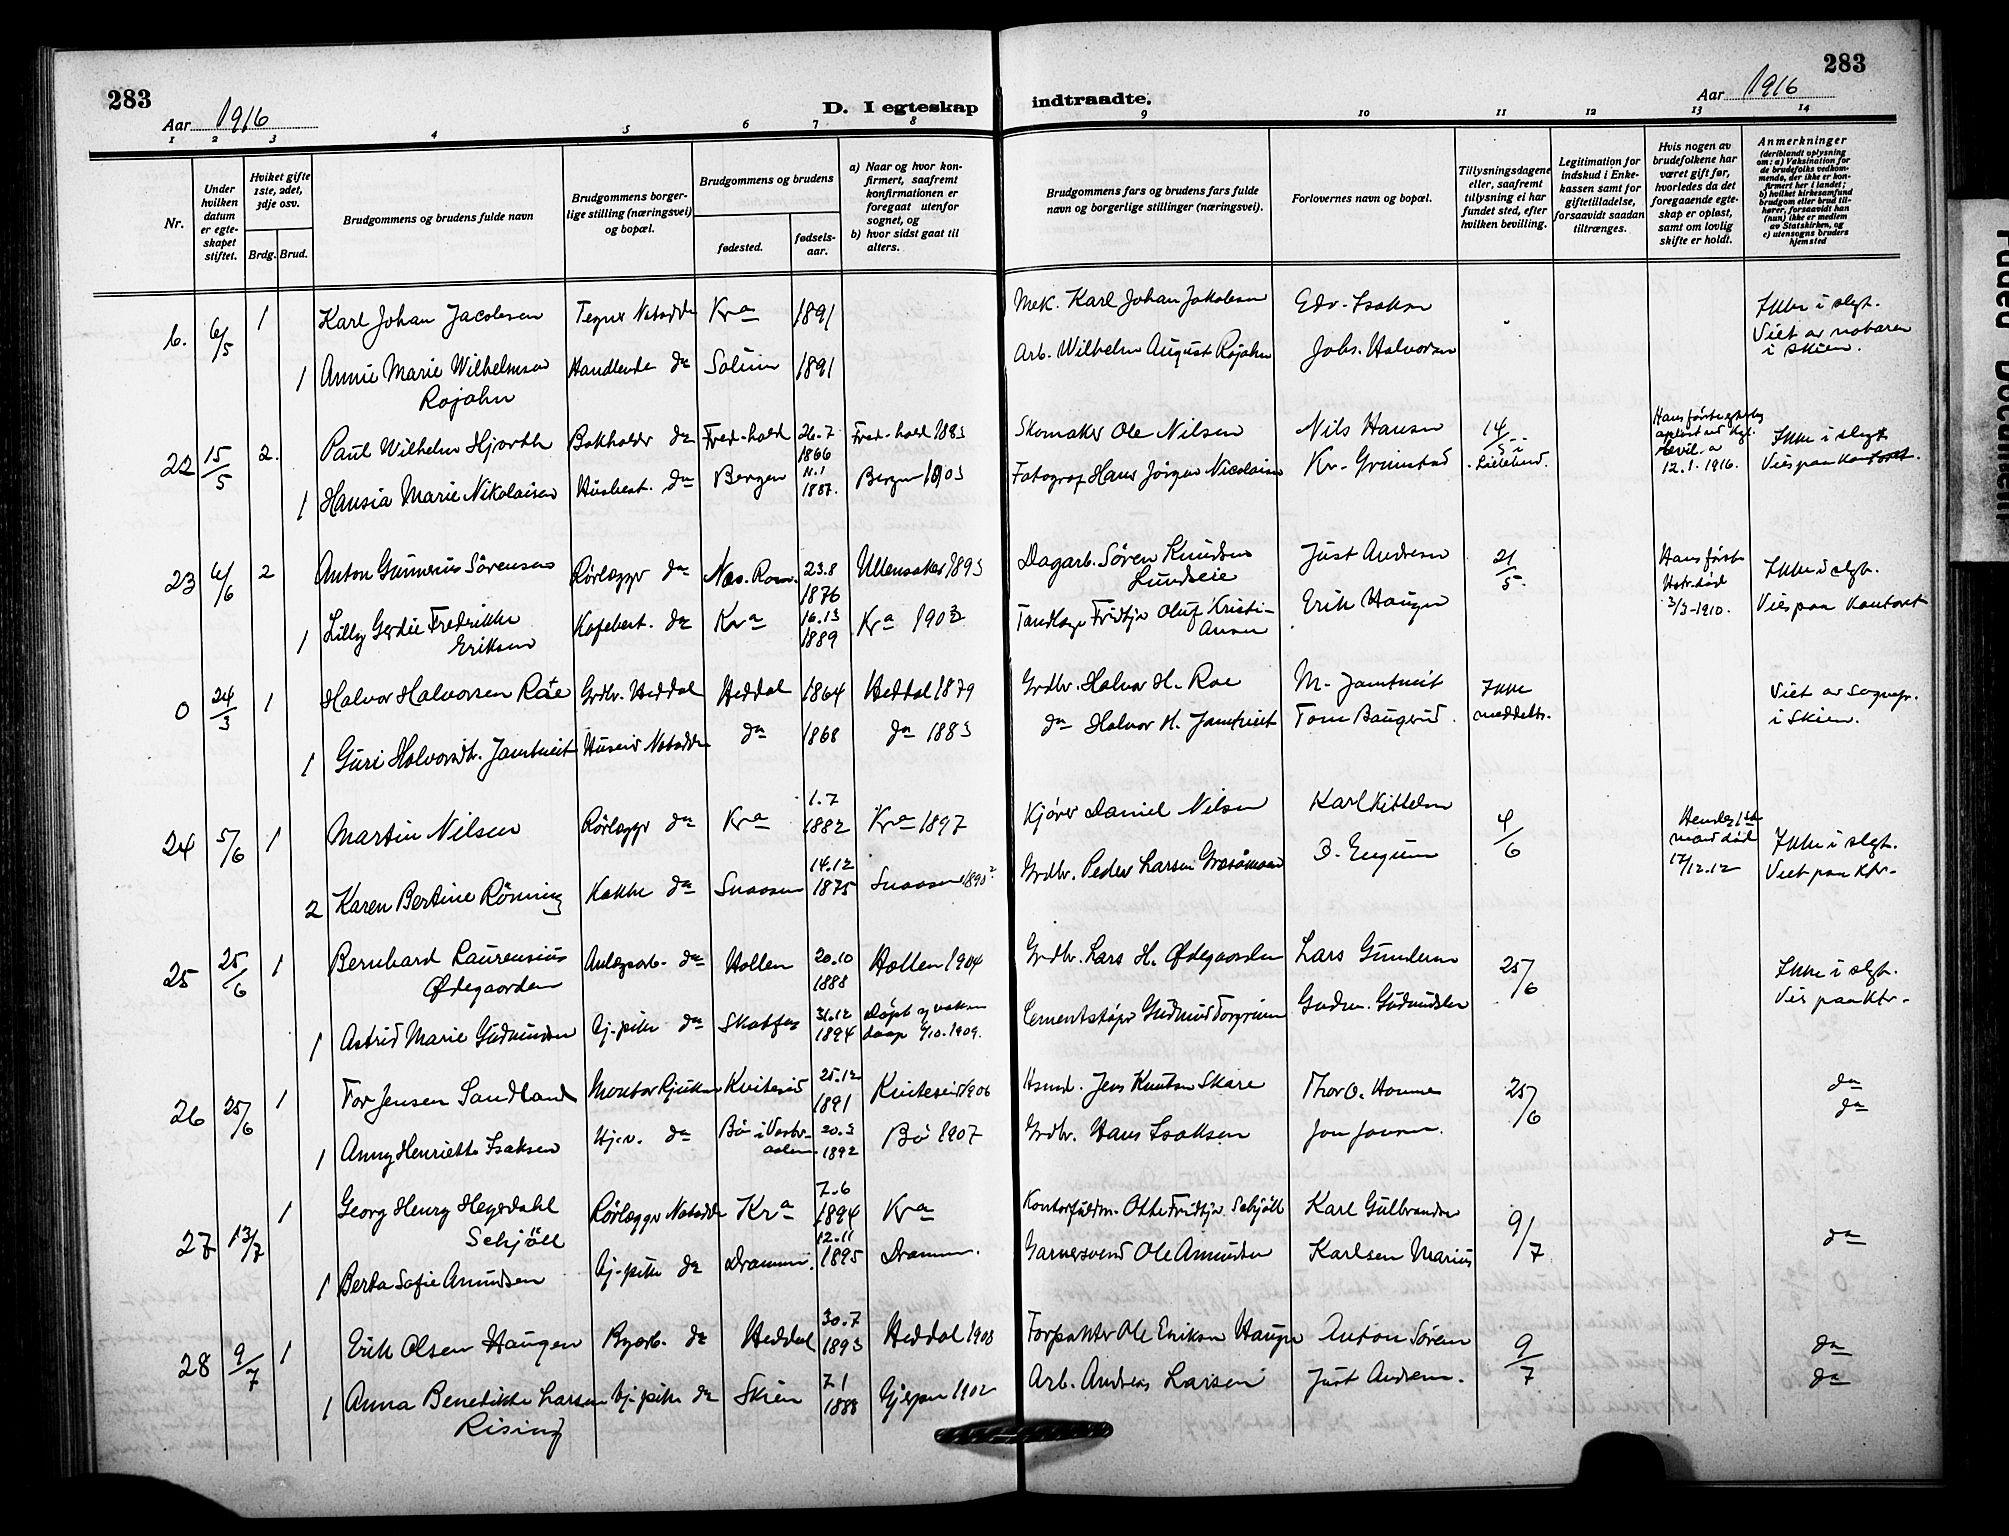 283
Aar 1916
D. I egteskap
indtraadte.
Aar 1916
283
1 2 3 4 5 6 7 8 9 10 11 12 13 14
Nr.
Under hvilken datum er egteskapet stiftet.
Hviket gifte 1ste, 2det, 3dje osv.
Brdg. Brud.
Brudgommens og brudens fulde navn
Brudgommens borgerlige stilling (næringsvei) og bopæl.
Brudgommens og brudens
fødested.
fødselsaar.
a) Naar og hvor konfirmert, saafremt konfirmationen er foregaat utenfor sognet, og
b) hvor sidst gaat til alters.
Brudgommens fars og brudens fars fulde navn og borgerlige stillinger (næringsvei).
Forlovernes navn og bopæl.
Tillysningsdagene eller, saafremt tillysning ei har fundet sted, efter hvilken bevilling.
Legitimation for indskud i Enkekassen samt for giftetilladelse, forsaavidt saadan tiltrænges.
Hvis nogen av brudefolkene har været gift før, hvorledes da det foregaaende egteskap er opløst, samt om lovlig skifte er holdt.
Anmerkninger
(deriblandt oplysning om: a) Vaksination for de brudefolks vedkommende, der ikke er konfirmert her i landet; b) hvilket kirkesamfund brudgom eller brud tilhører, forsaavidt han (hun) ikke er medlem av Statskirken, og c) utensogns bruders hjemsted
6. 6/5 1 Karl Johan Jacobsen Kra 1891 Mek. Karl Johan Jakobsen Edv. Isaksen Ikke i slegt.
Viet av notaren
i Skien.
1 Annie Marie Wilhelmsen Handlende do Solum 1891 Arb. Wilhelm August Rojahn Johs. Halvorsen
Rojahn
22 15/5 2. Paul Wilhelm Hjorth Bokholder do Fred-hald 26.7 1866 Fred-hald 1883 Skomaker Ole Nilsen Nils Hansen 14/5 Hans første egtesk. opløst ved kgl. bevil. a 12.1.1916. Ikke i slegt
1 Hansia Marie Nikolaisen Husbest. do Bergen 11.1 1887. Bergen 1903 Fotograf Hans Jörgen Nicolaisen Kr. Grimstad Lillelund. Vies paa Kontoret.
23 4/6 2 Anton Gunnerius Sörensen Rörlægger do Nes. Rom. 23.8 1876 Ullensaker 1893 Dagarb. Søren Knudsen Lundseie Just Andresen 21/5 Hans første Hstr. død 3/3-1910. Ikke i slegt.
1 Lilly Gerdie Fredrikke Eriksen Kafebest. do Kra 1889 Kra 1903 Tandlæge Fridtjo Oluf Kristiansen Erik Haugen Vies paa Kontoret
0 24/3 1 Halvor Halvorsen Roe Grdbr. Heddal Heddal 1864 Heddal 1879 Grdbr. Halvor H. Roe M. Jamtveit Ikke meddelt. Viet av sognepr.
i Skien.
1 Guri Halvorsdtr. Jamtveit Notodden do 1868 do 1883 do Halvor H. Jamtveit Tom Baugerud
24 5/6 1 Martin Nilsen Rörlægger do Kra 1.7 1882 Kra 1897 Kjörer Daniel Nilsen Karl Kittelsen 4/6 Hendes 1ste mand død 17/12.12 Ikke i slegt.
2 Karen Bertine Rönning Kokke do Snaasen 14.12 1875 Snaasen 1890? Grdbr. Peder Larsen B. Engum Viet paa Ktr.
25 25/6 1 Bernhard Laurensius Ødegaarden Anlægsarb. do Hollen 20.10 1888 Hollen 1904 Grdbr. Lars H. Ødegaarden Lars Gundersen 25/6 Ikke i slegt.
1 Astrid Marie Gudmundsen Tj.pike do Skotfos 31.12 1894 Døpt ved voksendaap 1909. Cementstöper Gudmund Torgrimsen Gudm. Gudmundsen Vies paa Ktr.
26 25/6 1 Tor Jensen Sandland Montør Rjukan Kviteseid 25.12 1891 Kviteseid 1906 Hsmd. Jens Knutsen Skare Thor O. Homme 25/6 do
1 Anny Henriette Isaksen do Bö i Vesteraalen 20.3 1892 Bö 1907 Grdbr. Hans Isaksen Jon Jonsen. do
27 13/7 1 Georg Henry Heyerdahl Schjöll Rörlægger Notodden Kra 7.6 1894 Kra Kontorfuldm. Otto Fridtjo Schjöll Karl Gulbrandsen 9/7 do
1 Berta Sofie Amundsen Tj-pike do Drammen. 12.11 1895 Drammen. Garversvend Ole Amundsen Karlsen Marius
28 9/7 1 Erik Olsen Haugen Byarb. do Heddal 30.7 1893 Heddal 1908 Forpakter Ole Eriksen Haugen Anton Sörensen 9/7 do
1 Anna Benedikte Larsen Tj.pike do Skien 7.1 1888 Gjerpen 1902 Arb. Andreas Larsen Just Andresen. do
Rising
Faded Document